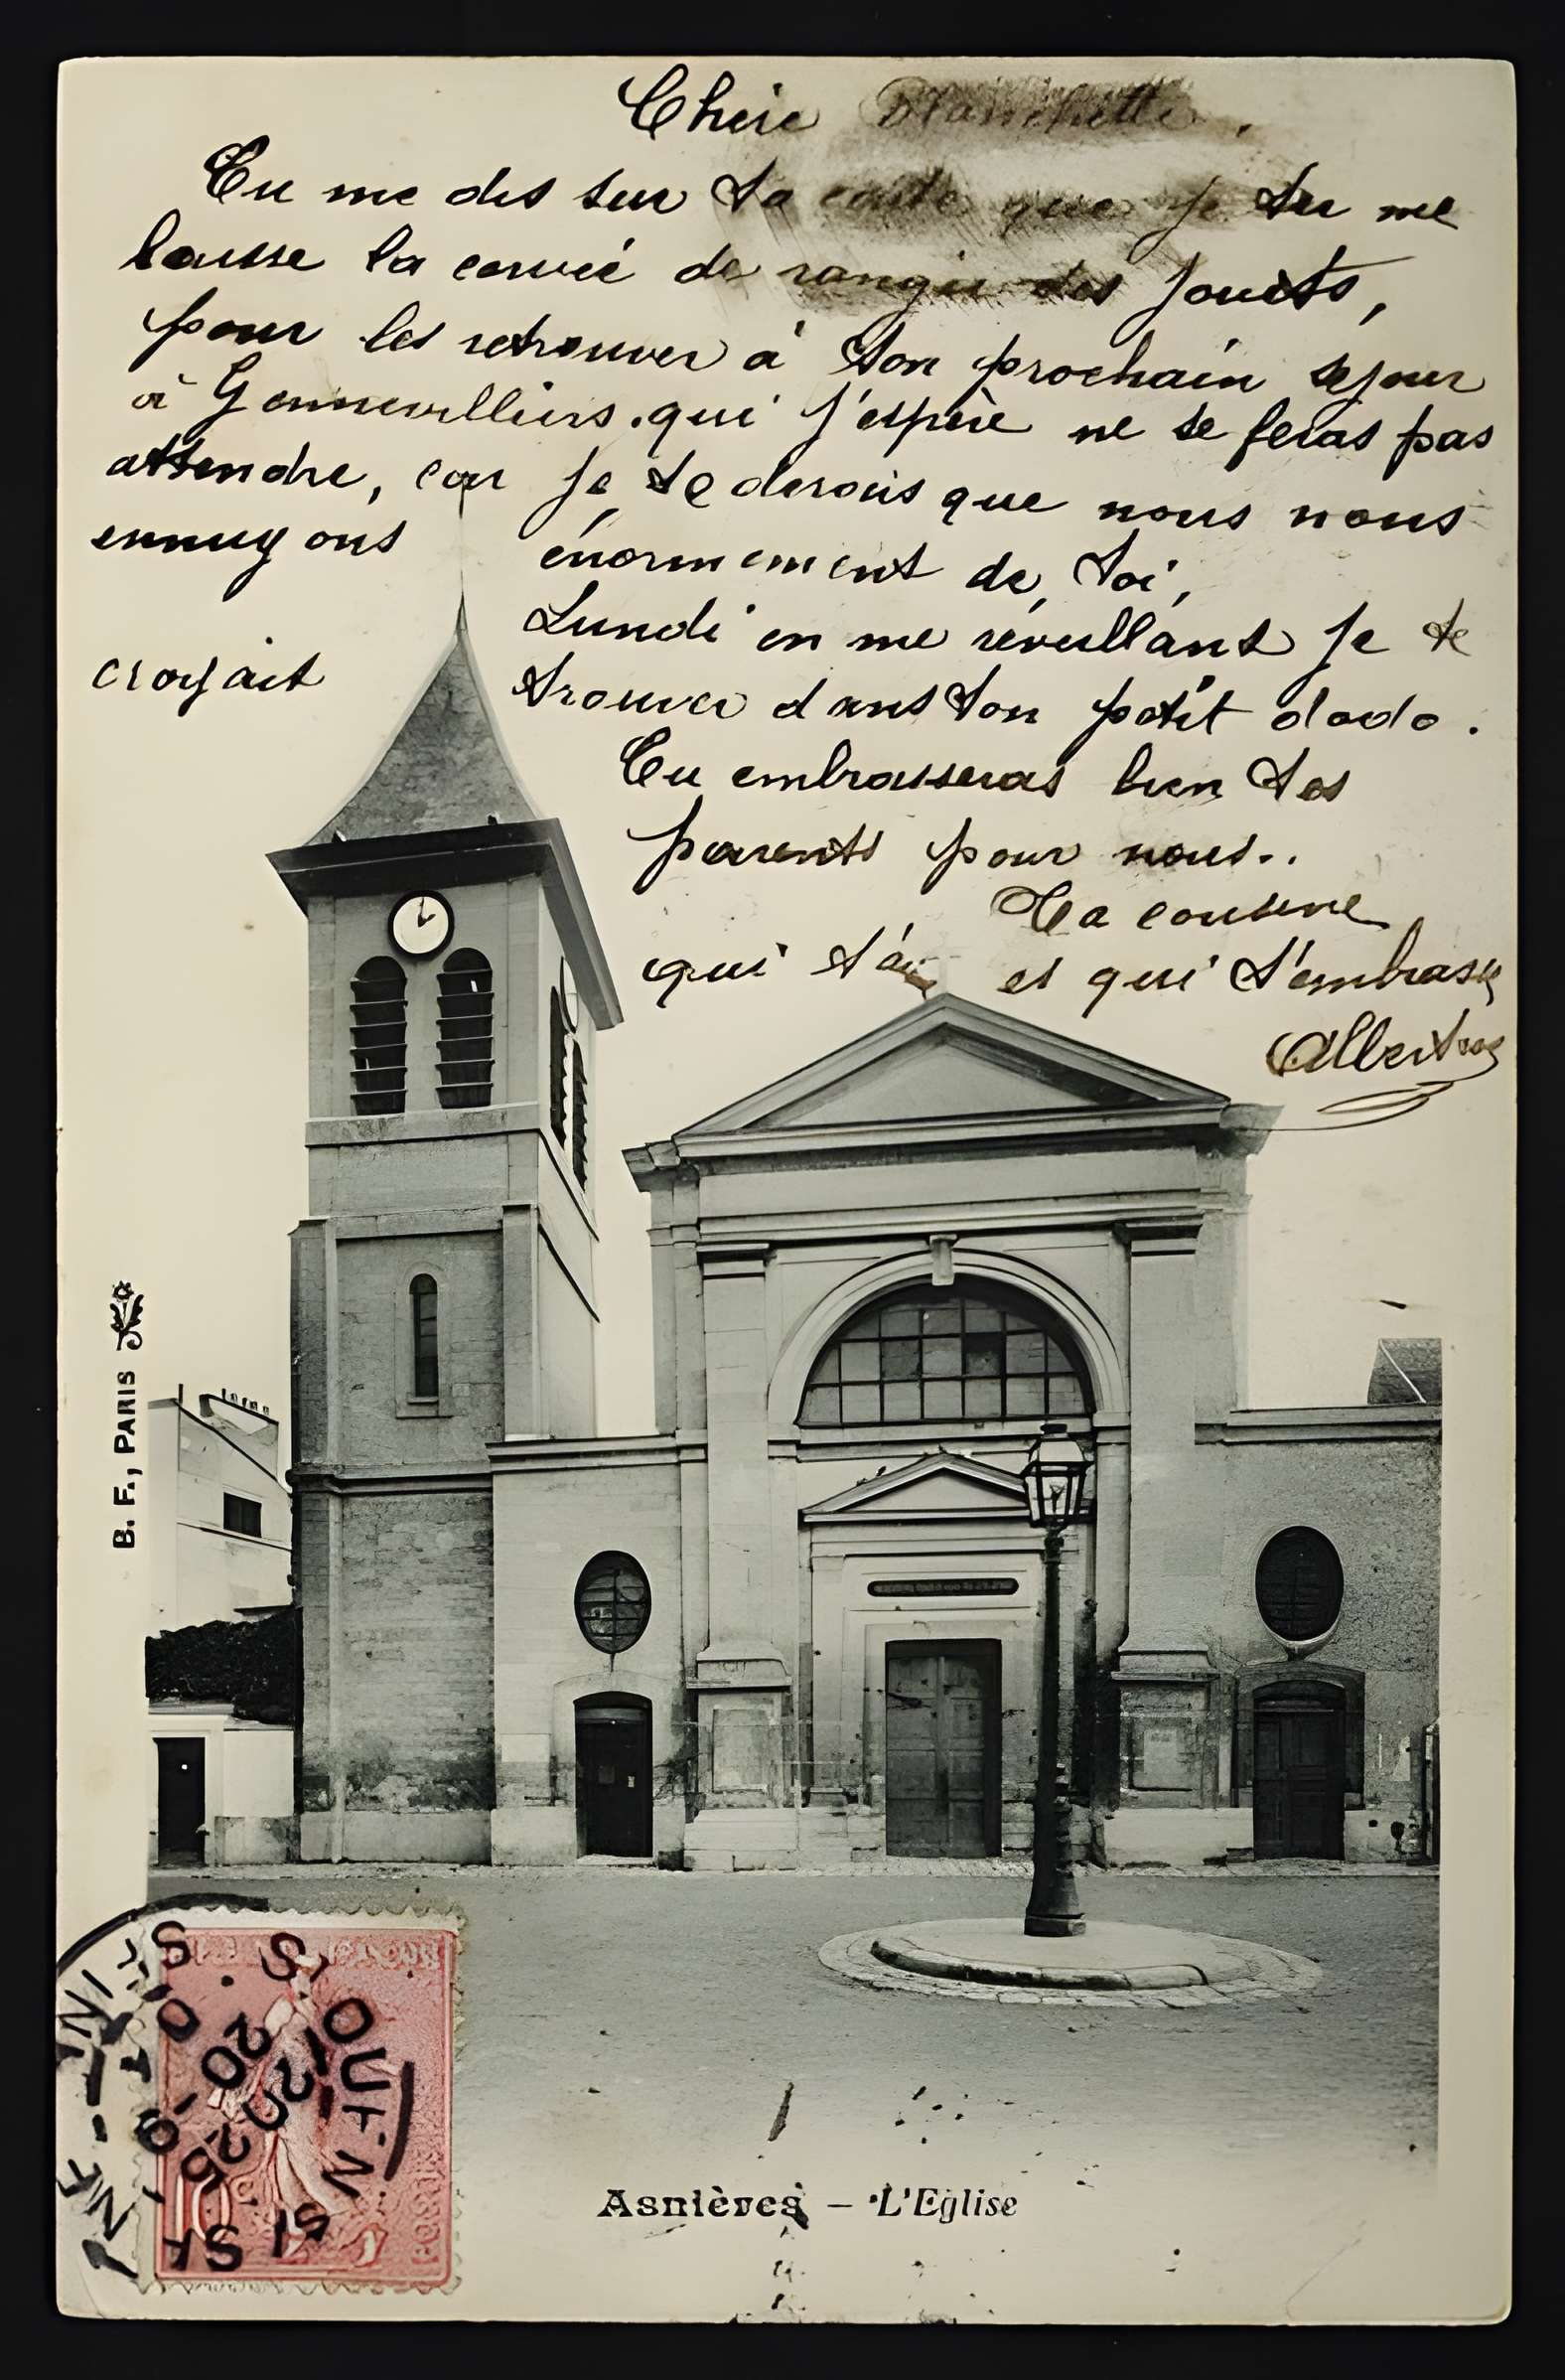 Chère Blanchette.
Tu me dis sur ta carte que je tu me
laisse la corvée de ranger des jouets,
pour les retrouver à ton prochain sejour
à Gennevilliers. qui j'espère ne se feras pas
attendre, car je te dirais que nous nous
ennuyons énormement de toi,
Lundi en me réveillant je te
croyait trouver dans ton petit dodo.
Tu embrasseras bien tes
parents pour nous..
Ta cousine
qui t'aime et qui t'embrasse
B. F., PARIS
Asnières – L'Eglise